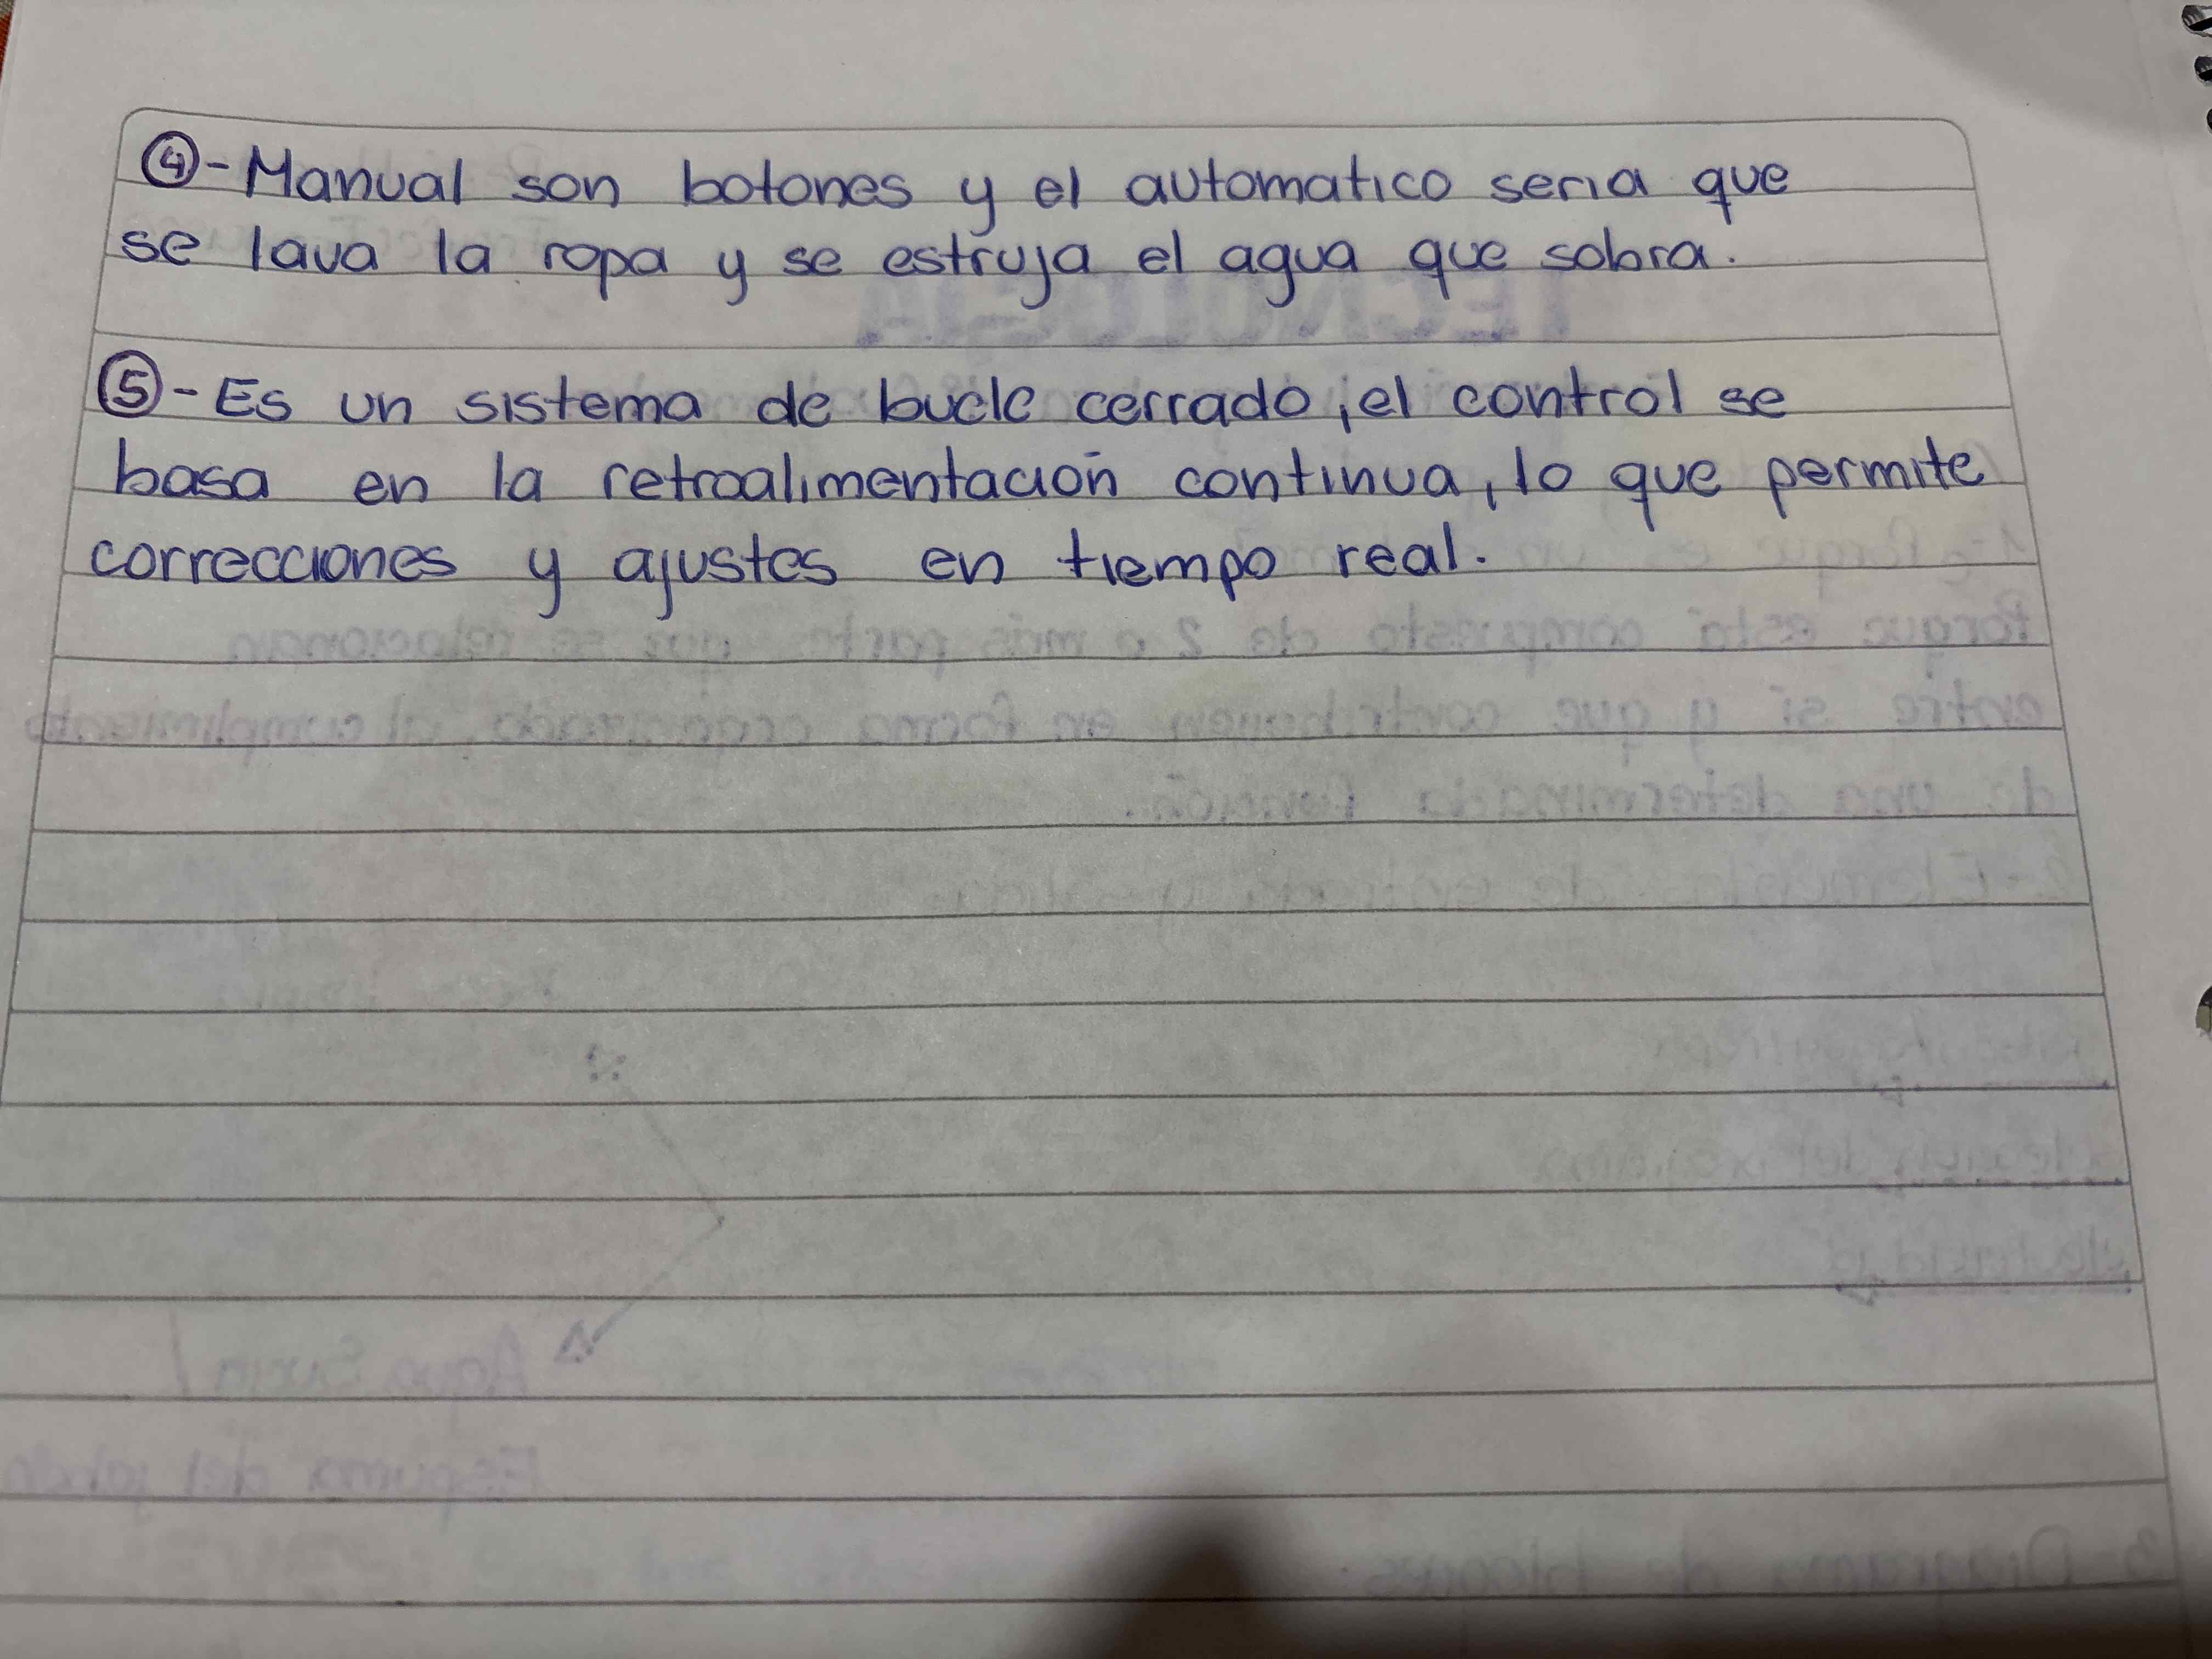 ④-Manual son botones y el automatico seria que
se lava la ropa y se estruja el agua que sobra.
⑤-Es un sistema de bucle cerrado, el control se
basa en la retroalimentación continua, lo que permite
correcciones y ajustes en tiempo real.